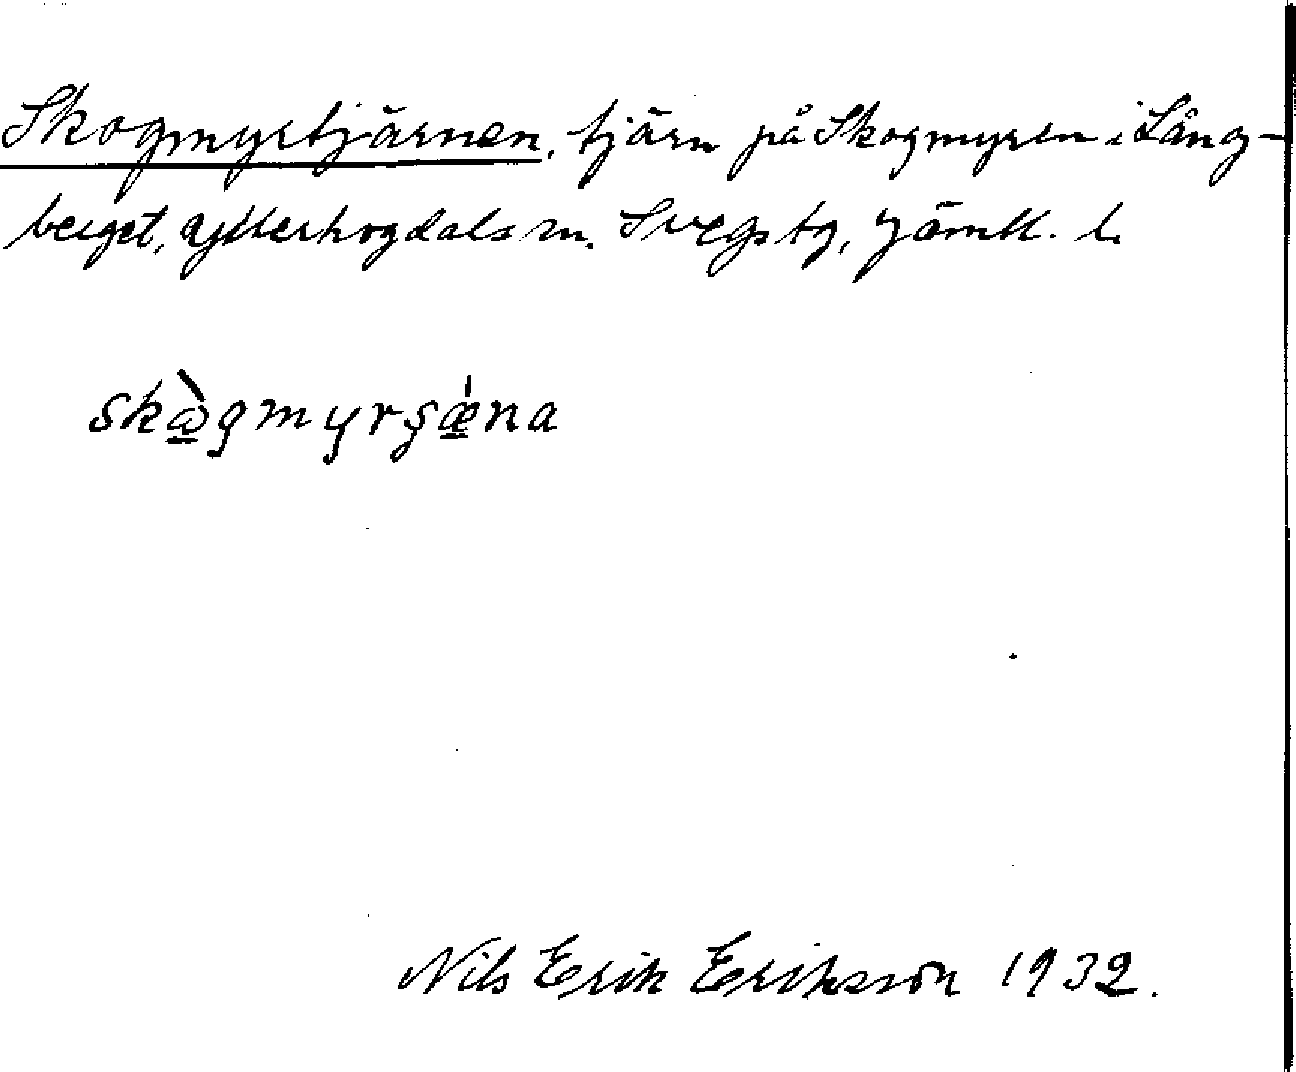 Skogmyrtjärnen, tjärn på Skogmyren i Lång-
berget, Ytterhogdals sn. Svegs tg, Jämtl. l.
skògmyrşǽna
Nils Erik Eriksson 1932.